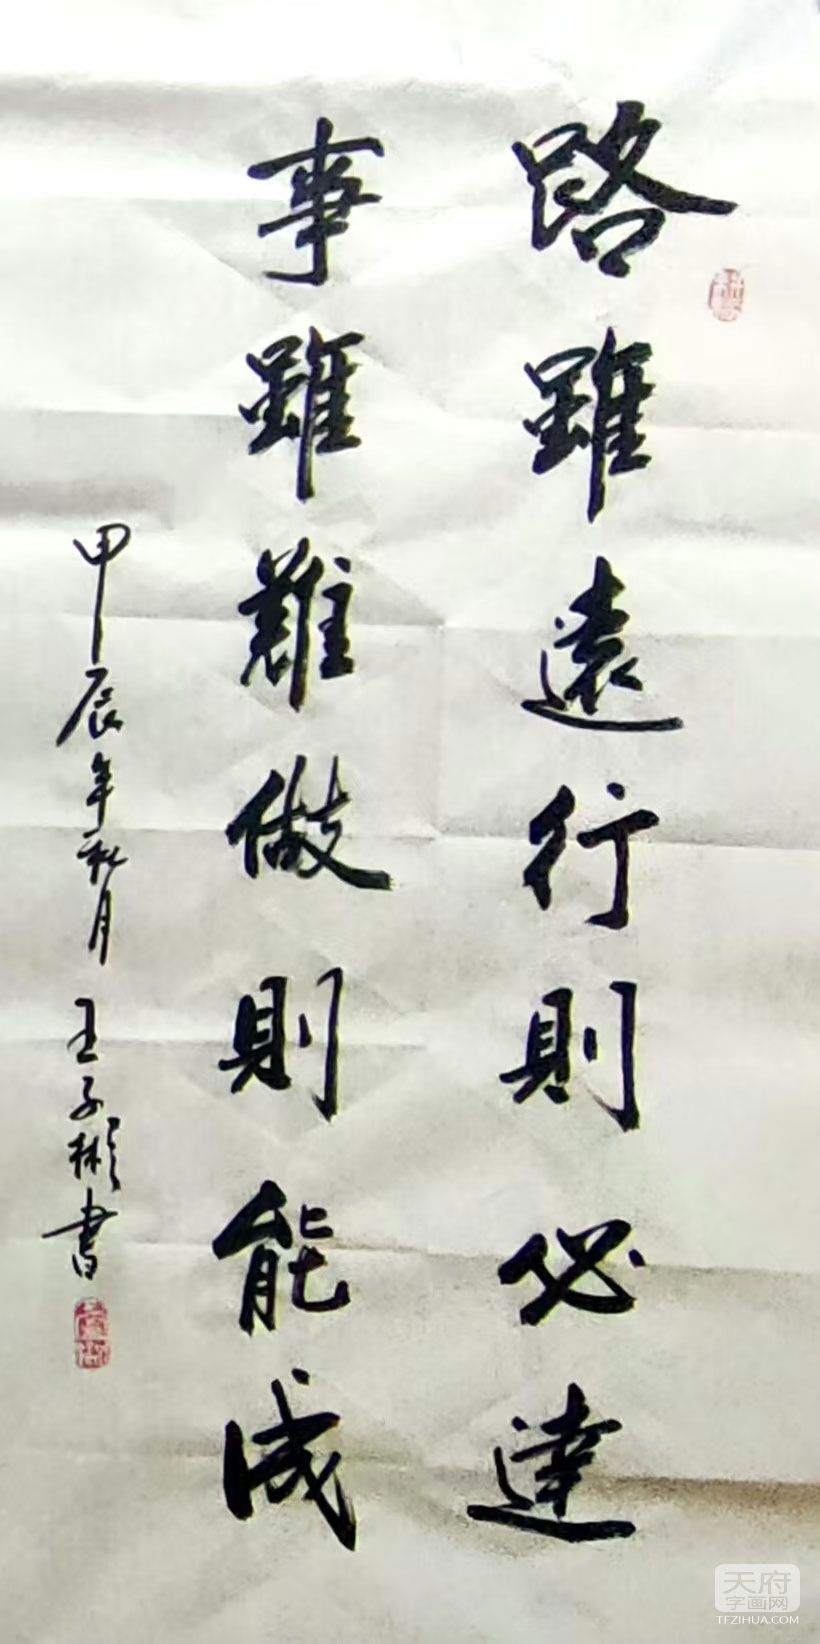 路雖遠行則必達
事雖難做則能成
甲辰年秋月王子彬書
天府
字画网
TFZIHUA.COM